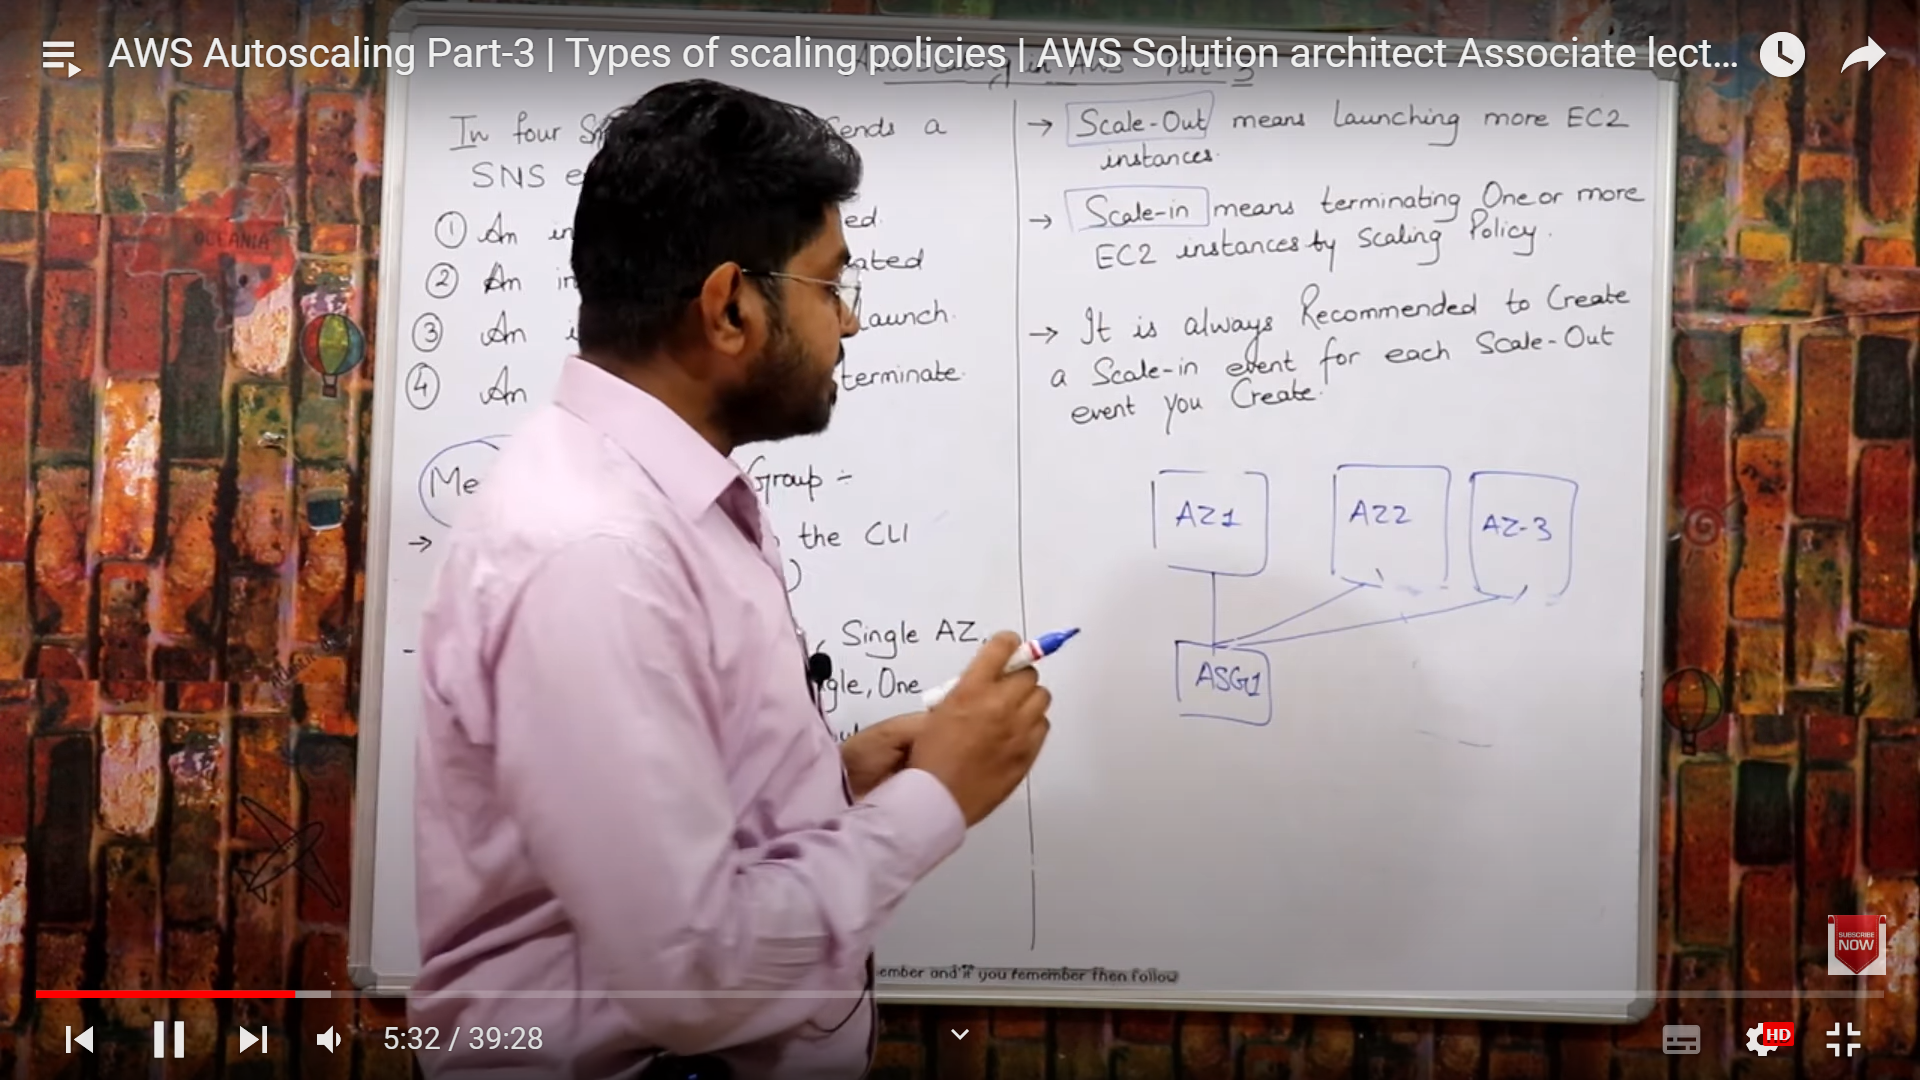 AWS Autoscaling Part-3 | Types of scaling policies | AWS Solution architect Associate lect...
in AWS Part-3
In four
ends a
SNS
① An
ed.
② An
ated
③ An
launch.
④ An
terminate.
Group :-
→ the CLI
Single AZ.
gle, One
→ Scale-Out means launching more EC2
instances.
→ Scale-in means terminating One or more
EC2 instances by Scaling Policy.
→ It is always Recommended to Create
a Scale-in event for each Scale-Out
event you Create.
AZ1 AZ2 AZ-3
ASG1
OCEANIA
ember and if you remember then follow
SUBSCRIBE
NOW
5:32 / 39:28
HD